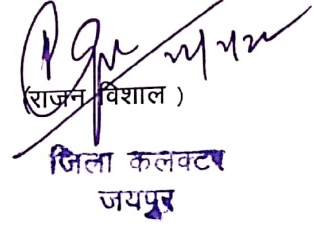 (राजन विशाल )
जिला कलक्टर
जयपुर